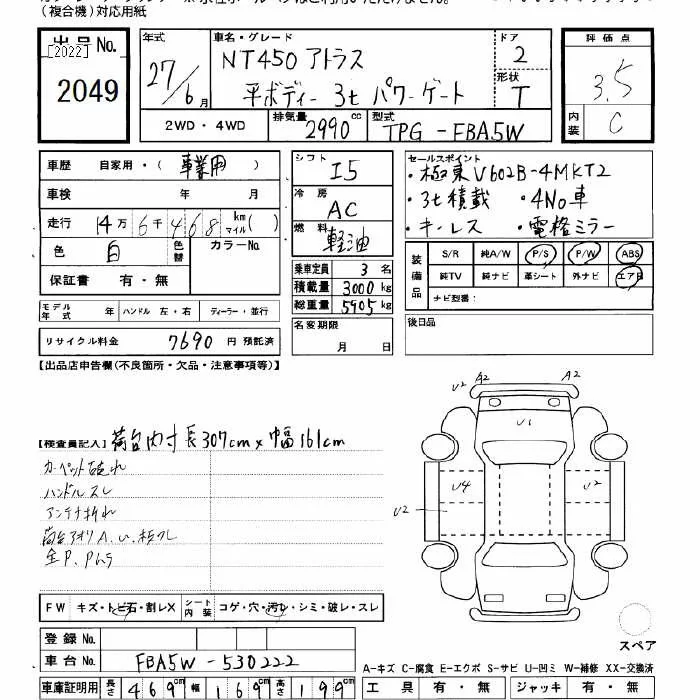 (複合機)対応用紙
出品No. [2022] 2049
年式 27/6月
車名・グレード NT450 アトラス
平ボディー 3t パワーゲート
ドア 2
形状 T
評価点 3.5
内装 C
2WD・4WD 排気量 2990cc 型式 TPG-FBA5W
車歴 自家用・(事業用)
車検 年 月
走行 14万6千468 km マイル( )
色 白 色替 カラーNo.
保証書 有・無
モデル年式 年 ハンドル 左・右 ディーラー・並行
リサイクル料金 7690 円 預託済
シフト I5
冷房 AC
燃料 軽油
乗車定員 3名
積載量 3000kg
総重量 5905kg
名変期限 月 日
セールスポイント
・極東V602B-4MKT2
・3t積載 ・4No車
・キーレス ・電格ミラー
装備品 S/R 純A/W P/S P/W ABS
純TV 純ナビ 革シート 外ナビ エアB
ナビ型番:
後日品
【出品店申告欄(不良箇所・欠品・注意事項等)】
【検査員記入】 荷台内寸 長307cm×幅161cm
カーペット破れ
ハンドルスレ
アンテナ折れ
U2 A2 A2 U2
U1
U4 U2
U2
FW キズ・トビ石・割レX シート内装 コゲ・穴・汚レ・シミ・破レ・スレ
登録No.
車台No. FBA5W-530222
車庫証明用 長さ 469cm 幅 169cm 高さ 199cm
スペア
A-キズ C-腐食 E-エクボ S-サビ U-凹ミ W-補修 XX-交換済
工具 有・無 ジャッキ 有・無